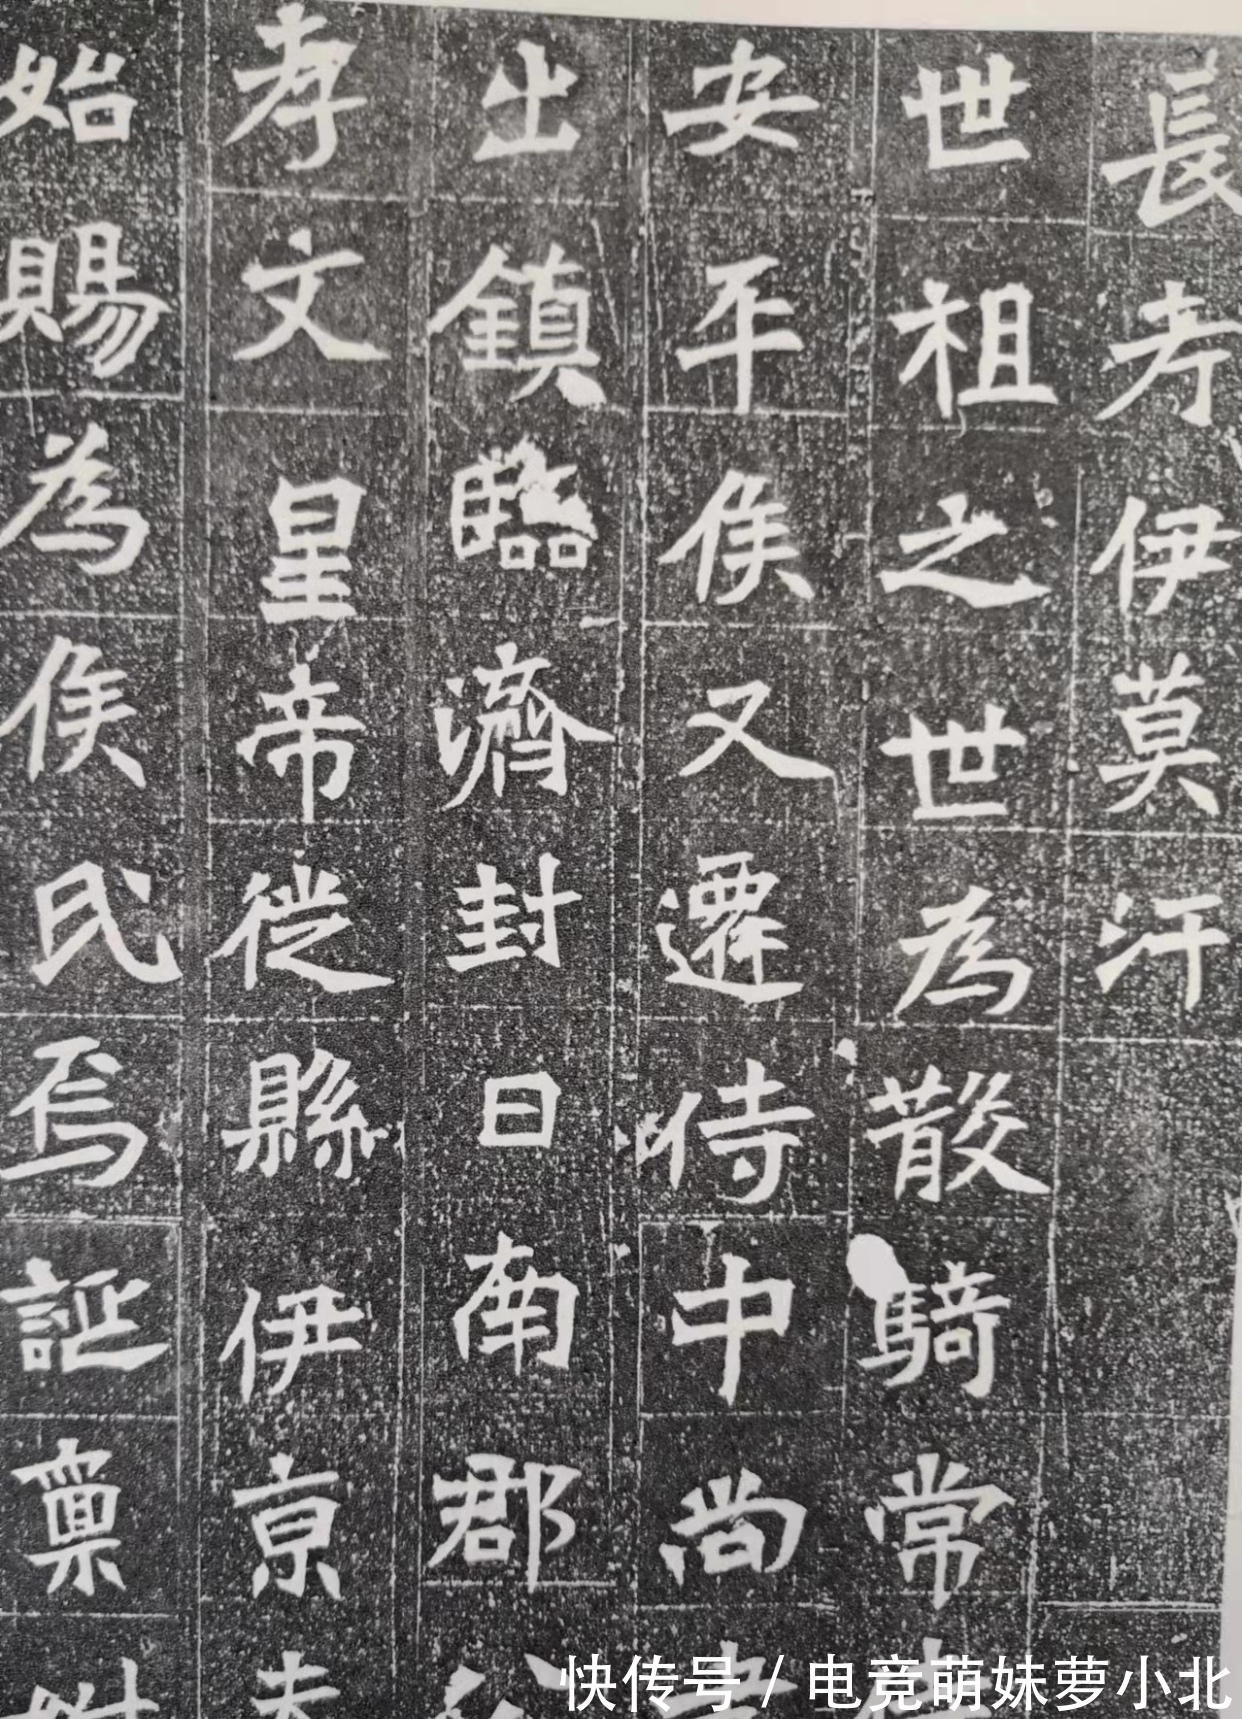 長孝伊莫汗
世祖之世為散騎常
安平侯又遷侍中尚
出鎮臨濟封日南郡
孝文皇帝從縣伊京
始賜為侯氏焉誕稟
快传号/电竞萌妹萝小北